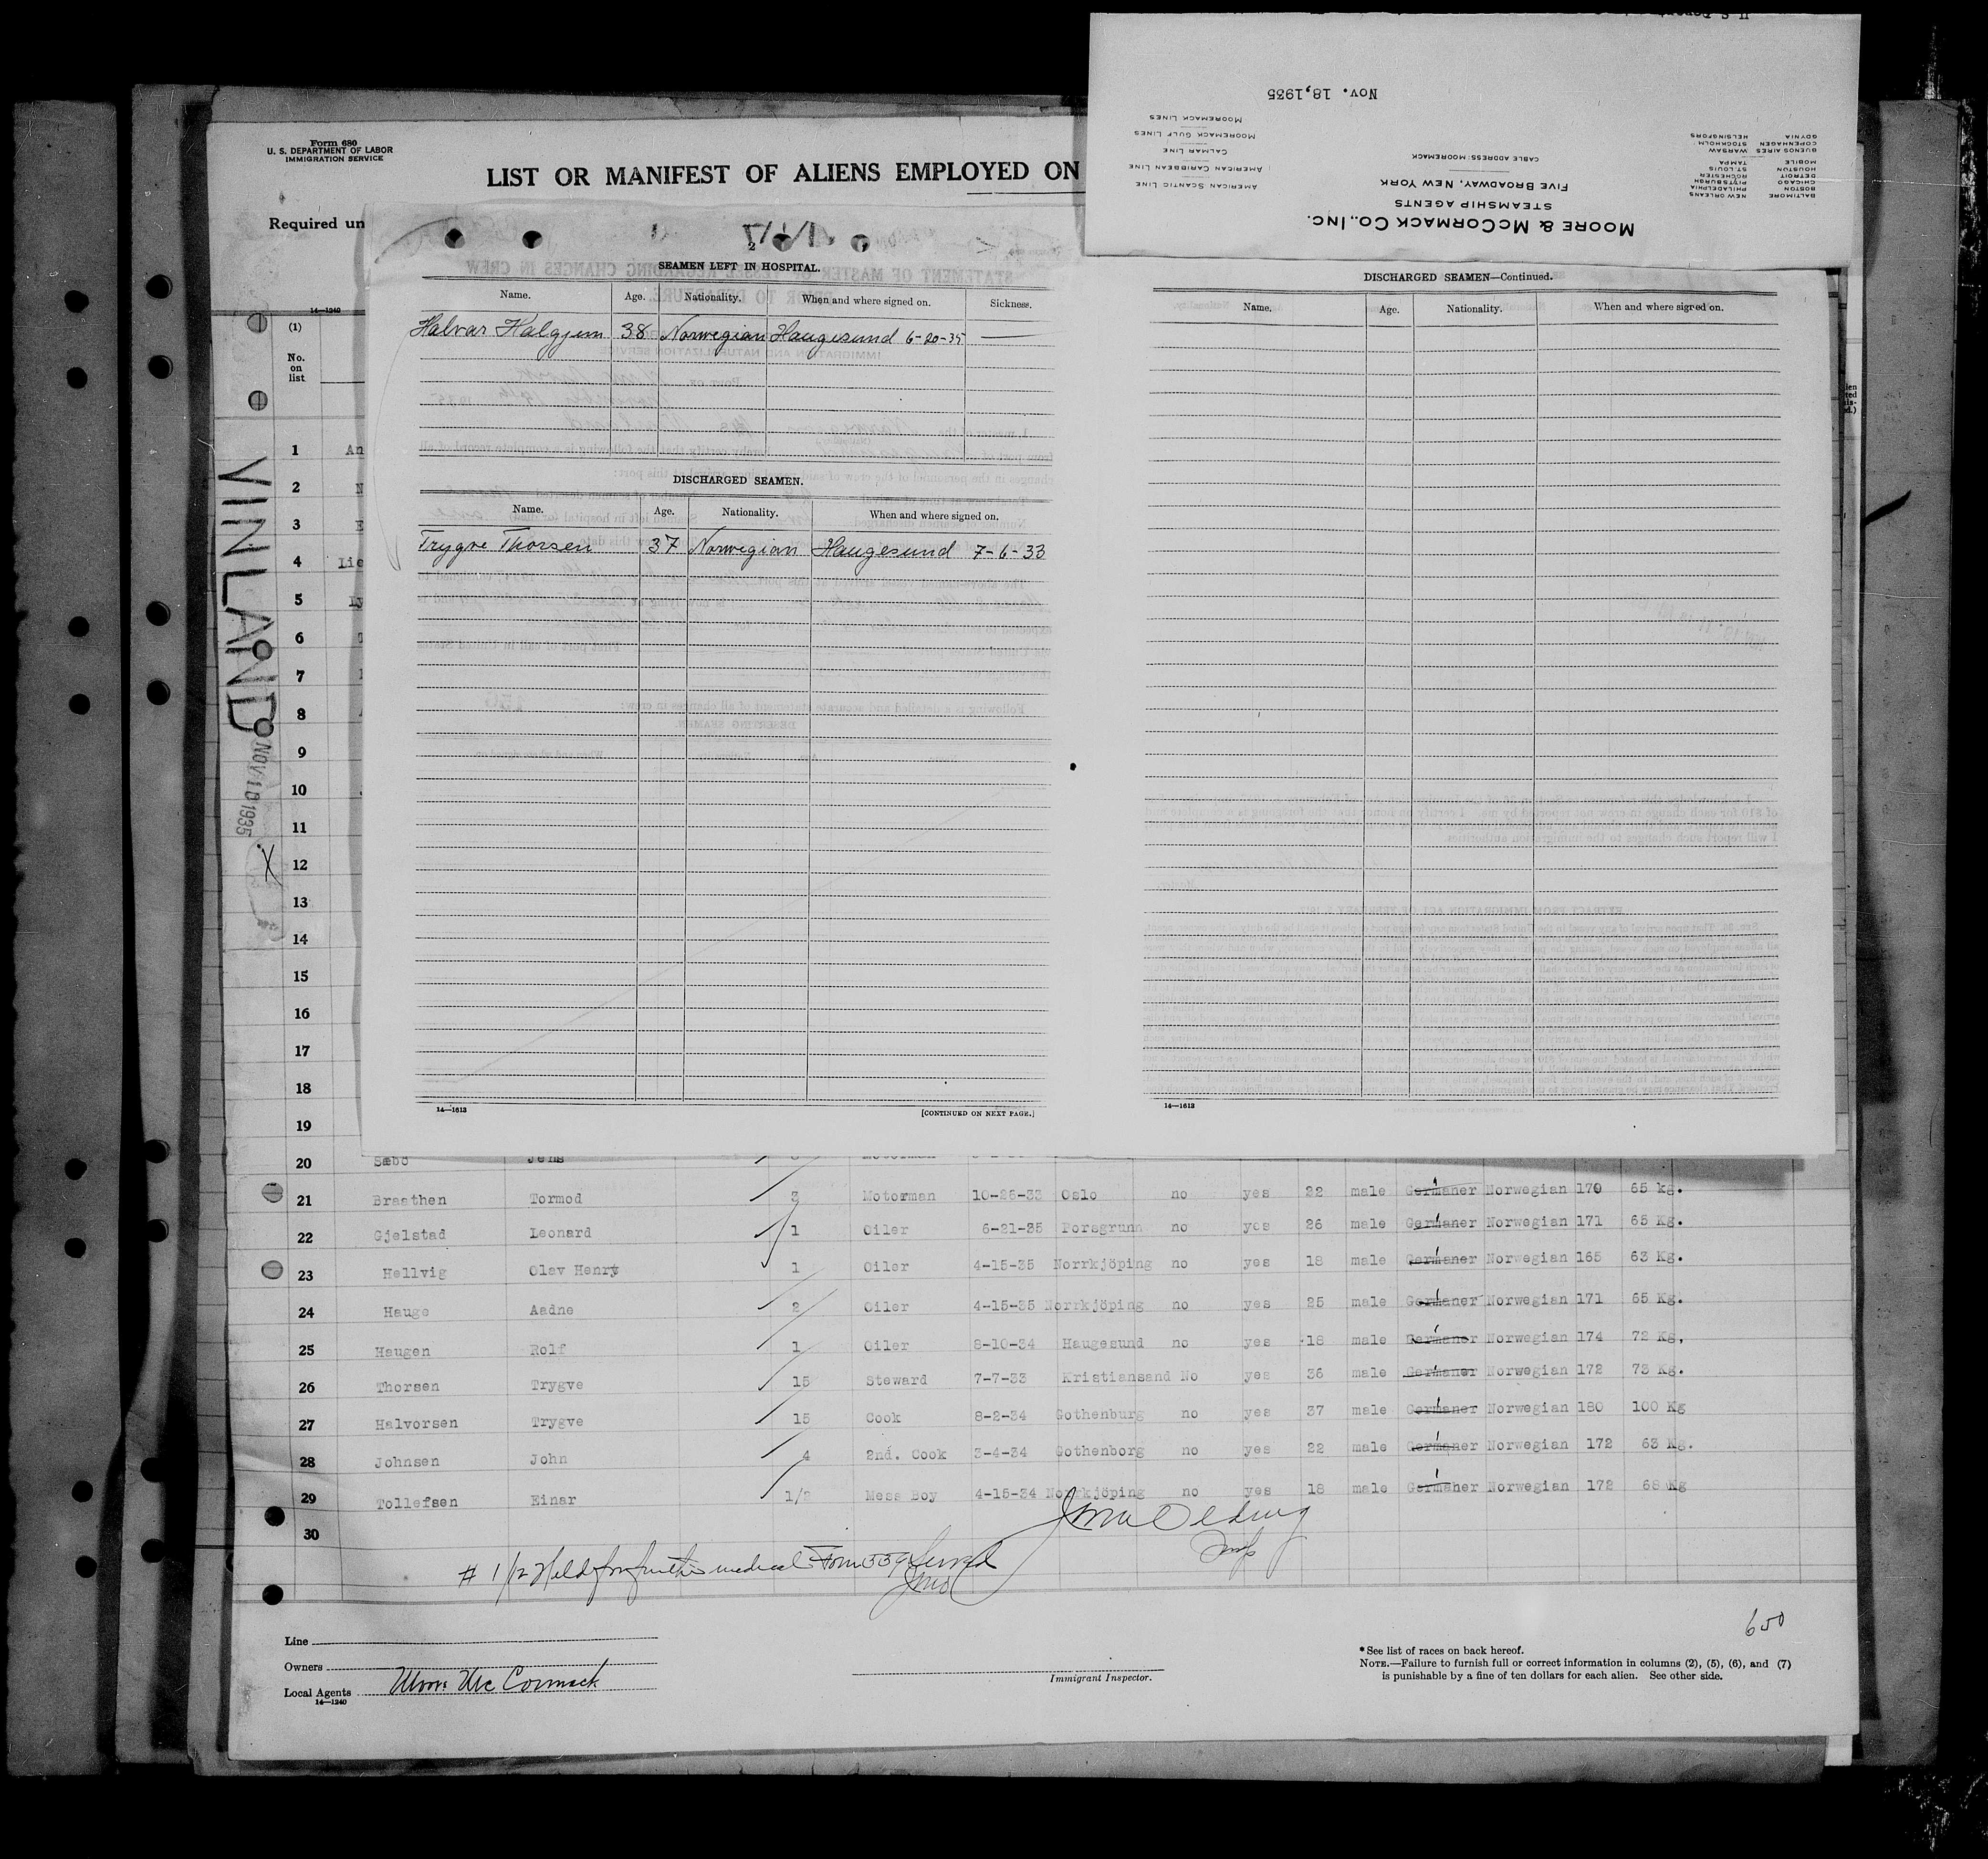 Form 680
U. S. DEPARTMENT OF LABOR
IMMIGRATION SERVICE
LIST OR MANIFEST OF ALIENS EMPLOYED ON
Required un
14—1240
(1)
No.
on
list
VINLAND
NOV 18 1935
X
2
SEAMEN LEFT IN HOSPITAL.
Name. Age. Nationality. When and where signed on. Sickness.
Halvar 38 Norwegian Haugesund 6-20-35 —
DISCHARGED SEAMEN.
Name. Age. Nationality. When and where signed on.
Trygve Thorsen 37 Norwegian Haugesund 7-6-33
14—1613 [CONTINUED ON NEXT PAGE.]
MOORE & McCORMACK CO., INC.
STEAMSHIP AGENTS
FIVE BROADWAY, NEW YORK
CABLE ADDRESS: MOOREMACK
BALTIMORE NEW ORLEANS
BOSTON PHILADELPHIA
CHICAGO PITTSBURGH
DETROIT ROCHESTER
HOUSTON ST. LOUIS
MOBILE TAMPA
BUENOS AIRES WARSAW
COPENHAGEN STOCKHOLM
GDYNIA HELSINGFORS
AMERICAN SCANTIC LINE
AMERICAN CARIBBEAN LINE
CALMAR LINE
MOOREMACK GULF LINES
MOOREMACK LINES
Nov. 18,1935
DISCHARGED SEAMEN—Continued.
Name. Age. Nationality. When and where signed on.
14—1613
1 An
2 N
3 E
4 Lie
5 Ly
6
7
8
9
10
11
12
13
14
15
16
17
18
19
20 Sæbö Jens Motorman
21 Braathen Tormod 3 Motorman 10-26-33 Oslo no yes 22 male Germaner Norwegian 170 65 kg.
22 Gjelstad Leonard 1 Oiler 6-21-35 Porsgrunn no yes 26 male Germaner Norwegian 171 65 Kg.
23 Hellvig Olav Henry 1 Oiler 4-15-35 Norrkjöping no yes 18 male Germaner Norwegian 165 63 Kg.
24 Hauge Aadne 2 Oiler 4-15-35 Norrkjöping no yes 25 male Germaner Norwegian 171 65 Kg.
25 Haugen Rolf 1 Oiler 8-10-34 Haugesund no yes 18 male Germaner Norwegian 174 72 Kg,
26 Thorsen Trygve 15 Steward 7-7-33 Kristiansand No yes 36 male Germaner Norwegian 172 73 Kg.
27 Halvorsen Trygve 15 Cook 8-2-34 Gothenburg no yes 37 male Germaner Norwegian 180 100 Kg
28 Johnsen John 4 2nd. Cook 3-4-34 Gothenborg no yes 22 male Germaner Norwegian 172 63 Kg.
29 Tollefsen Einar 1/2 Mess Boy 4-15-34 Norrkjöping no yes 18 male Germaner Norwegian 172 68 Kg
30
# 1/12 Held for further medical Form 559 served
650
Line
Owners
Local Agents Moore McCormack
14—1240
Immigrant Inspector.
*See list of races on back hereof.
NOTE.—Failure to furnish full or correct information in columns (2), (5), (6), and (7)
is punishable by a fine of ten dollars for each alien. See other side.